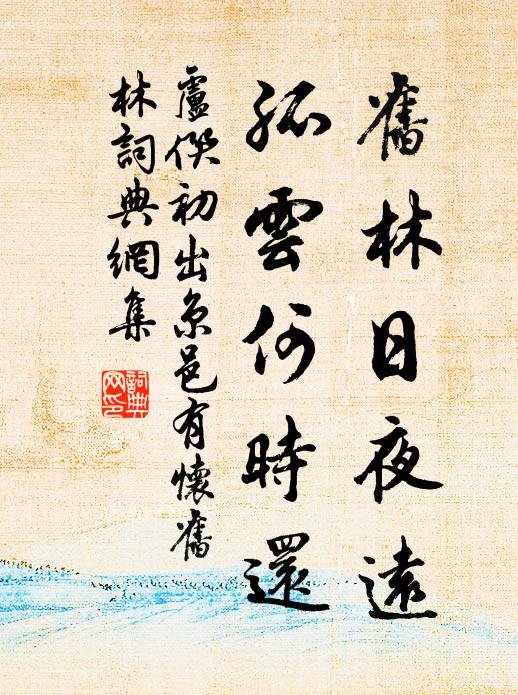 舊林日夜遠
孤雲何時還
盧僎初出京邑有懷舊
林詞典網集
詞典
网印